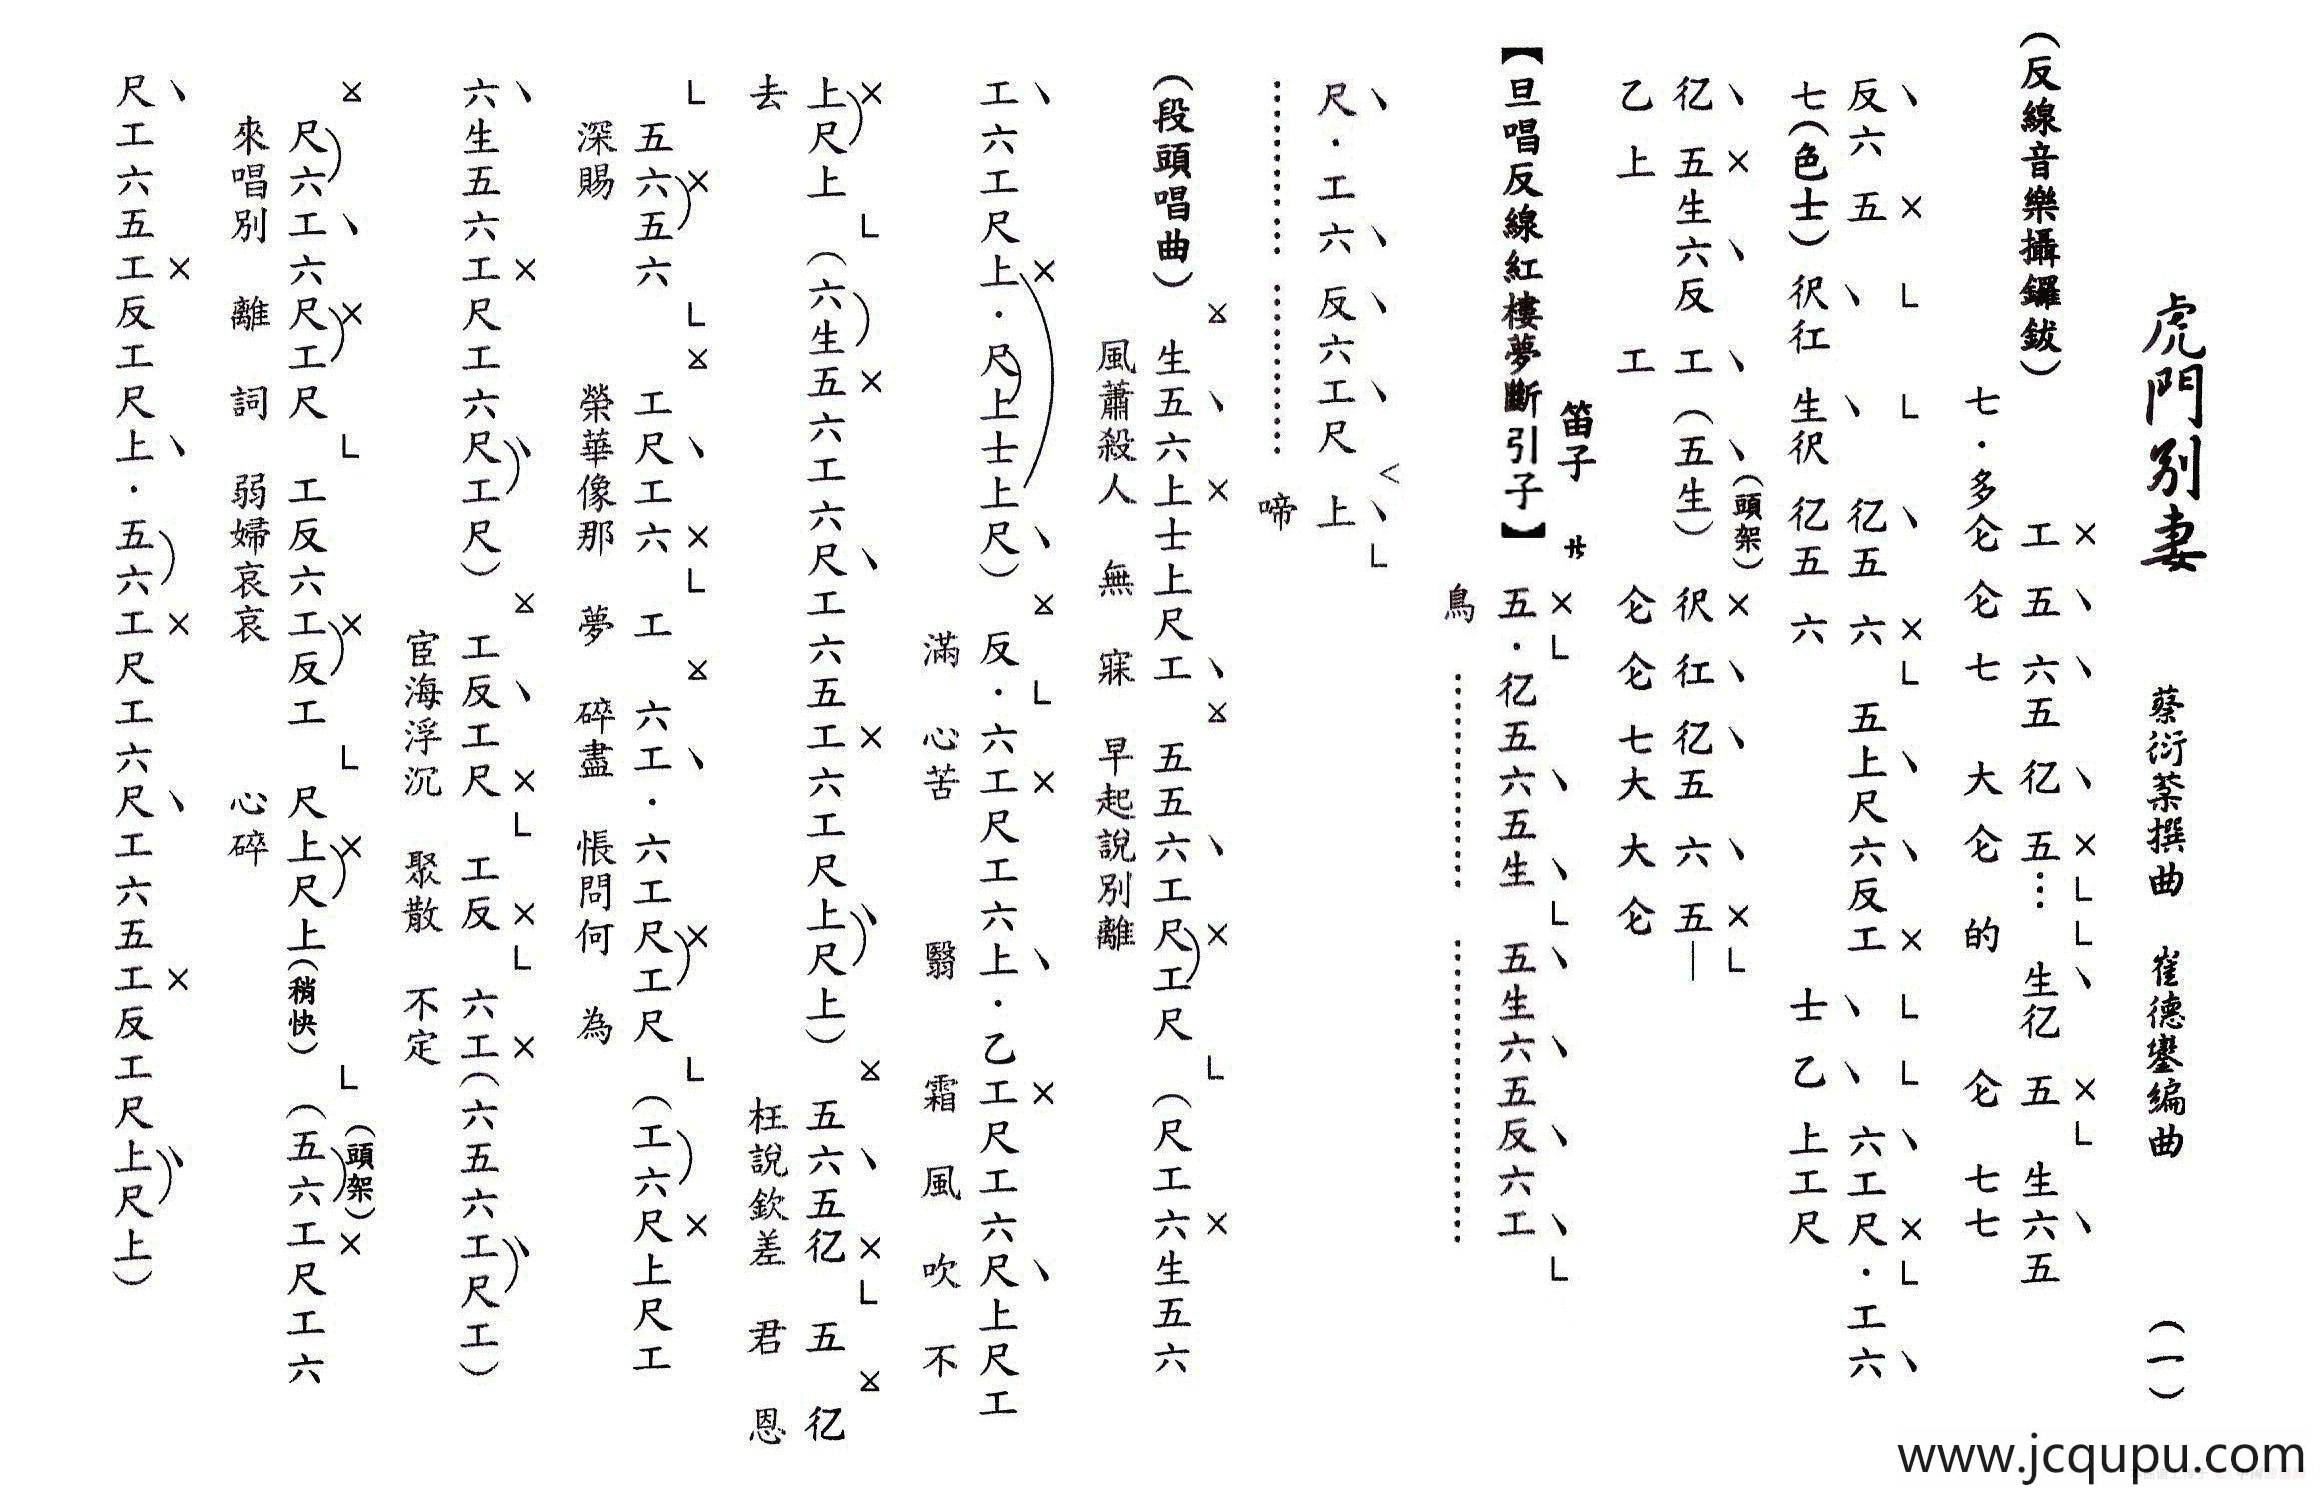 虎門別妻 蔡衍棻撰曲 崔德鑾編曲 (一)
(反線音樂攝鑼鈸) 工五六五亿五…生亿五生六五
七·多仑仑七大仑的仑七七
反六五亿五六五上尺六反工六工尺·工六
七(色士)伬仜生伬亿五六士乙上工尺
亿五生六反工(五生)(頭架)伬仜亿五六五—
乙上工仑仑七大大仑
【旦唱反線紅樓夢斷引子】笛子 廿 五·亿五六五生五生六五反六工
鳥
尺·工六反六工尺上
啼
(段頭唱曲) 生五六上士上尺工五五六工尺工尺(尺工六生五六
風蕭殺人無寐早起說別離
工六工尺上·尺上士上尺)反·六工尺工六上·乙工尺工六尺上尺工
滿心苦翳霜風吹不
上尺上(六生五六工六尺工六五工六工尺上尺上)五六五亿五亿
去 枉說欽差君恩
五六五六工尺工六工六工·六工尺工尺(工六尺上尺工
深賜榮華像那夢碎盡悵問何為
六生五六工尺工六尺工尺)工反工尺工反六工(六五六工尺工)
宦海浮沉聚散不定
尺六工六尺工尺工反六工反工尺上尺上(稍快)(頭架)(五六工尺工六
來唱別離詞弱婦哀哀心碎
尺工六五工反工尺上·五六工尺工六尺工六五工反工尺上尺上)
www.jcqupu.com